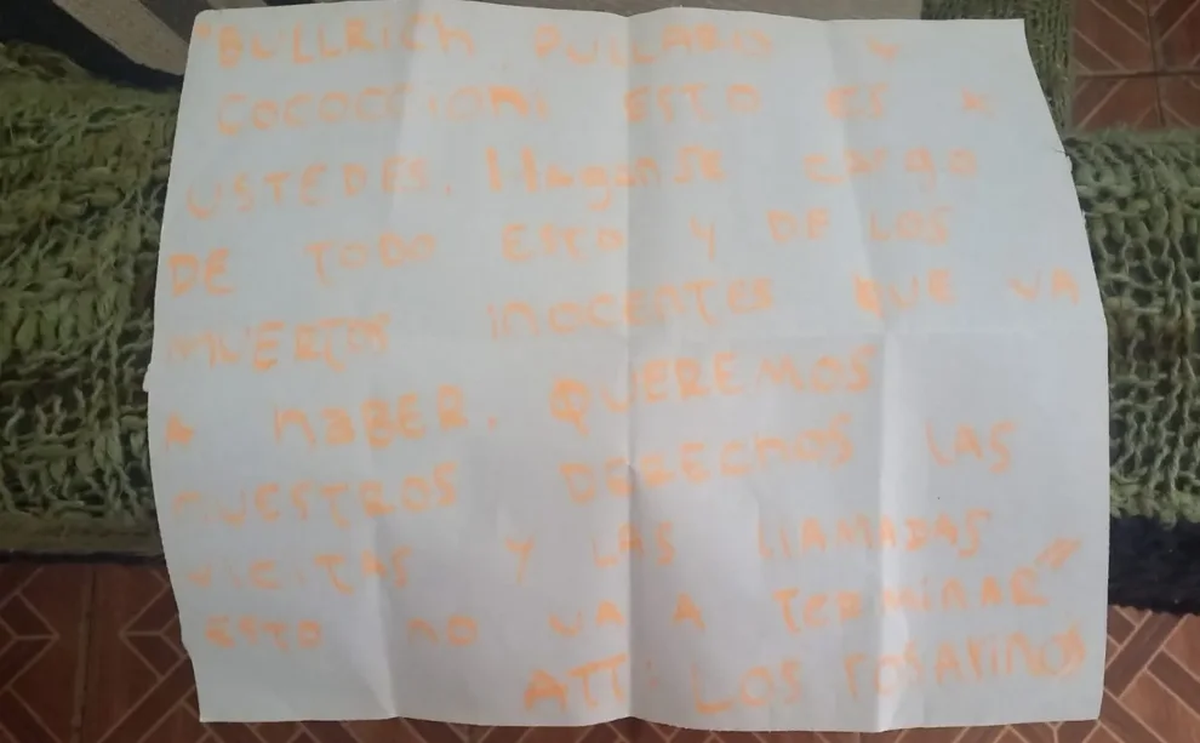 "BULLRICH PULLARO Y
COCOCCIONI ESTO ES X
USTEDES. Hagan SE cargo
DE TODO ESTO Y DE LOS
MUERTOS INOCENTES QUE VA
A HABER. QUEREMOS
NUESTROS DERECHOS LAS
VICITAS Y LAS LLAMADAS
ESTO NO VA A TERMINAR"
ATT: LOS ROSARINOS